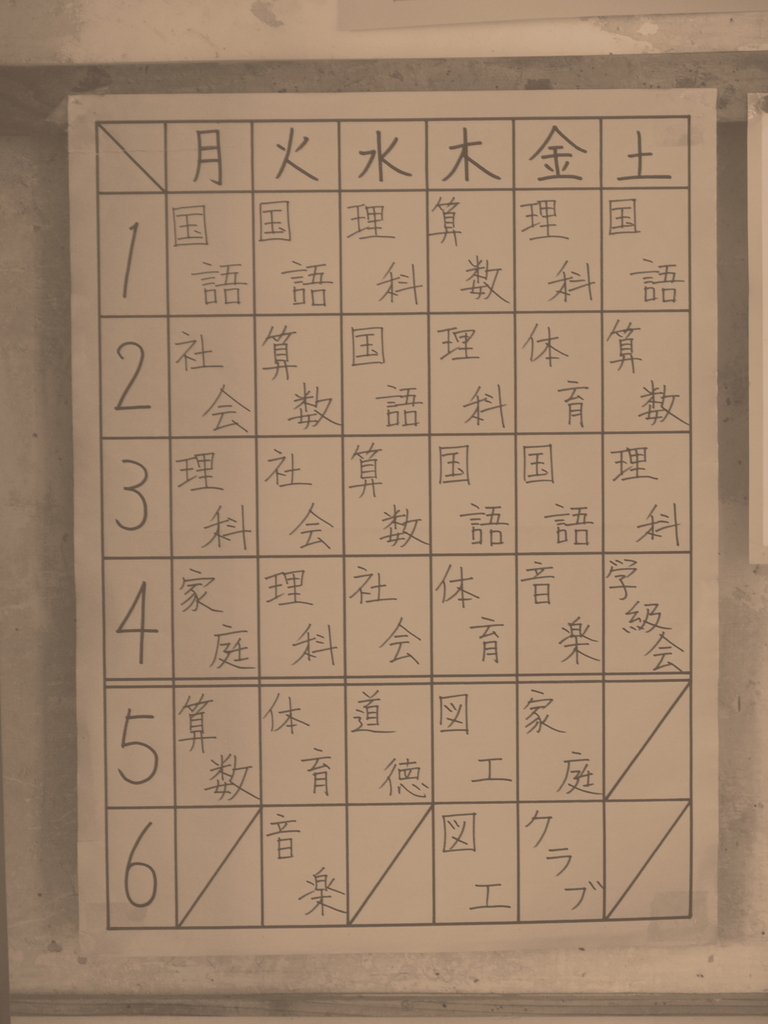 月 火 水 木 金 土
1 国語 国語 理科 算数 理科 国語
2 社会 算数 国語 理科 体育 算数
3 理科 社会 算数 国語 国語 理科
4 家庭 理科 社会 体育 音楽 学級会
5 算数 体育 道徳 図工 家庭
6 音楽 図工 クラブ